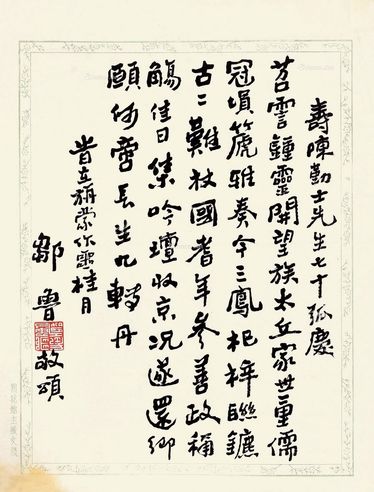 壽陳勤士先生七十弧慶
苕霅鍾靈開望族太丘家世重儒
冠塤箎雅奏今三鳳杞梓聯鑣
古二難杖國耆年參善政稱
觴佳日集吟壇收京況遂還鄉
願何啻長生九轉丹
旹在旃蒙作噩桂月
鄒魯敬頌